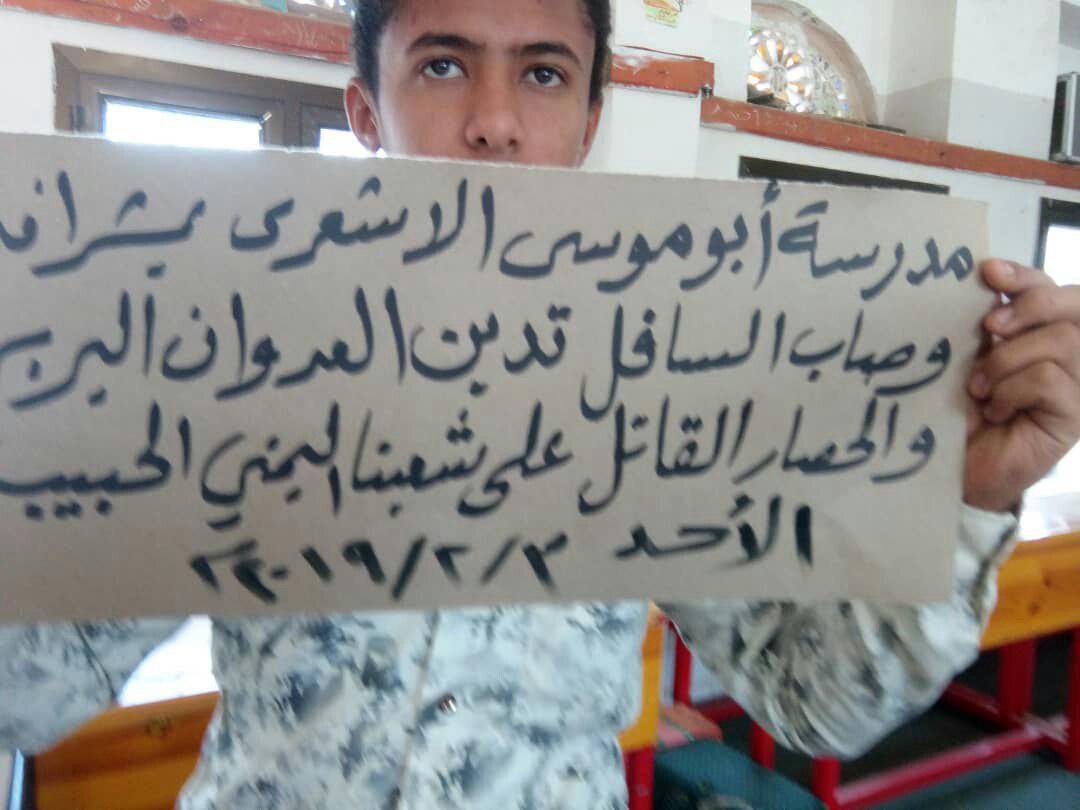 مدرسة أبو موسى الاشعرى بمشرافة
وصاب السافل تدين العدوان البربر
والحصار القاتل على شعبنا اليمني الحبيب
الأحد ٣/٢/٢٠١٩